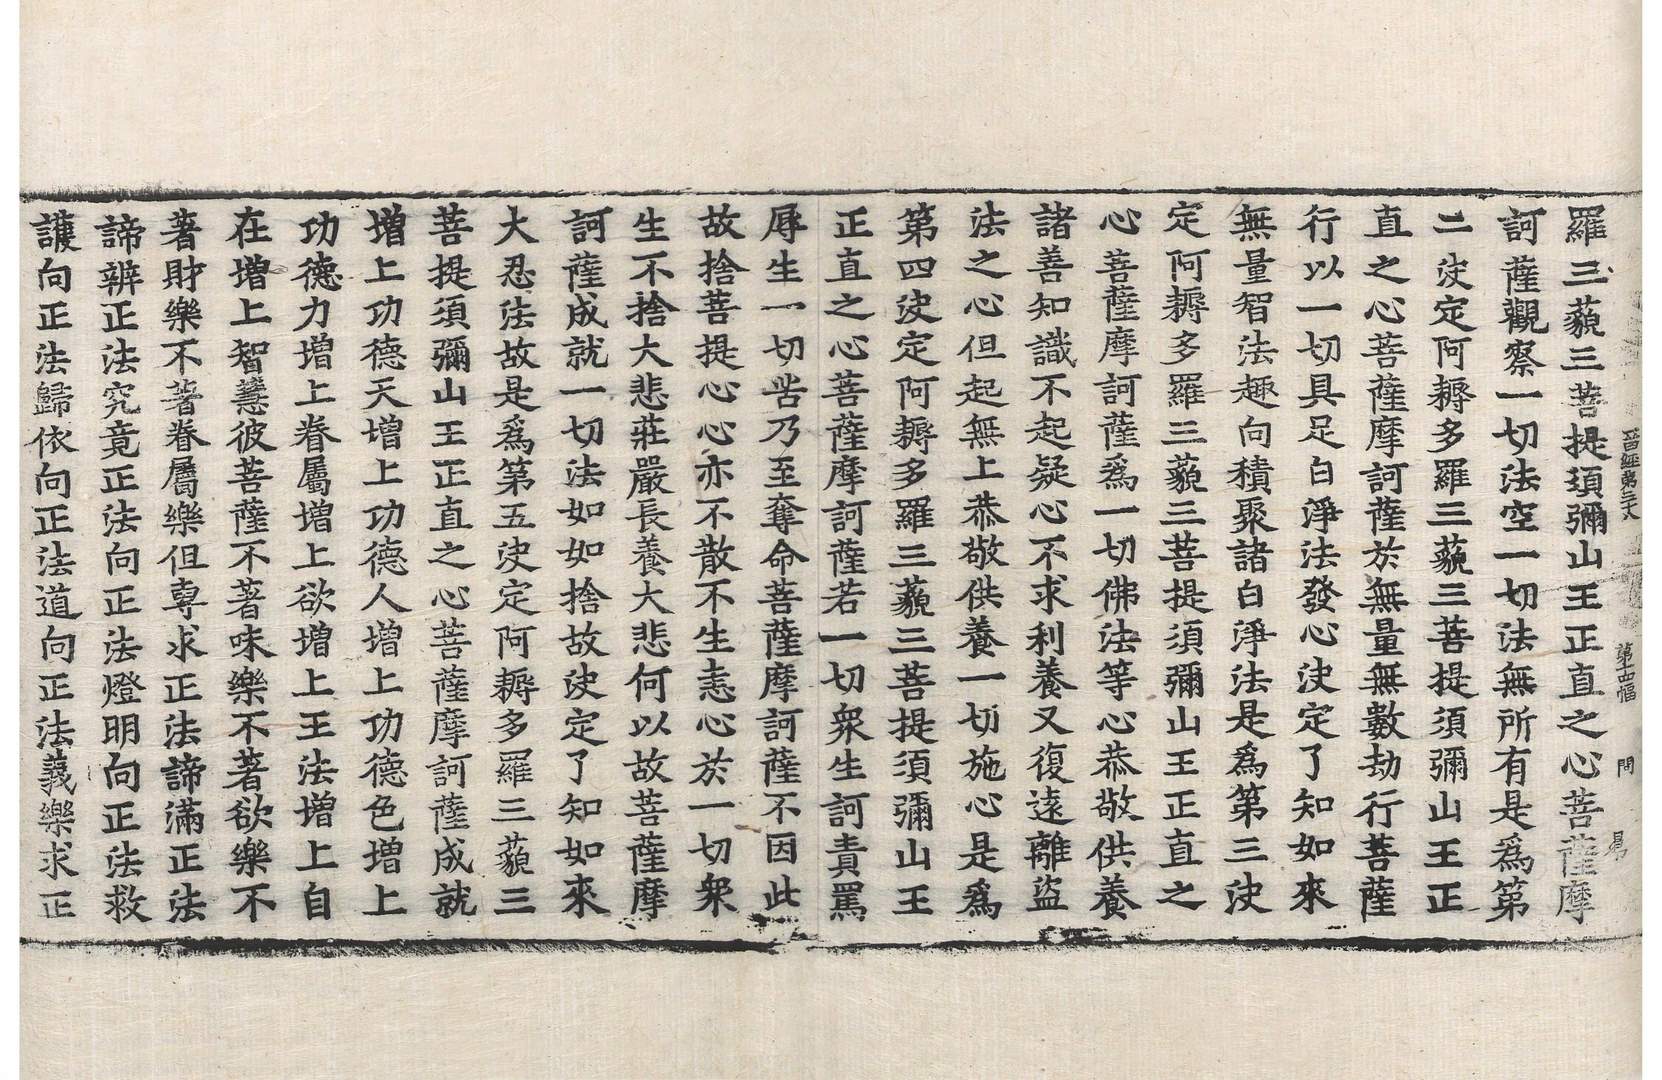 晉經第三十八　第十四幅　問　昺
羅三藐三菩提須彌山王正直之心菩薩摩
訶薩觀察一切法空一切法無所有是爲第
二决定阿耨多羅三藐三菩提須彌山王正
直之心菩薩摩訶薩於無量無數劫行菩薩
行以一切具足白淨法發心决定了知如來
無量智法趣向積聚諸白淨法是爲第三决
定阿耨多羅三藐三菩提須彌山王正直之
心菩薩摩訶薩爲一切佛法等心恭敬供養
諸善知識不起疑心不求利養又復遠離盜
法之心但起無上恭敬供養一切施心是爲
第四决定阿耨多羅三藐三菩提須彌山王
正直之心菩薩摩訶薩若一切衆生訶責罵
辱生一切苦乃至奪命菩薩摩訶薩不因此
故捨菩提心心亦不散不生恚心於一切衆
生不捨大悲莊嚴長養大悲何以故菩薩摩
訶薩成就一切法如如捨故决定了知如來
大忍法故是爲第五决定阿耨多羅三藐三
菩提須彌山王正直之心菩薩摩訶薩成就
增上功德天增上功德人增上功德色增上
功德力增上眷屬增上欲增上王法增上自
在增上智慧彼菩薩不著味樂不著欲樂不
著財樂不著眷屬樂但專求正法諦滿正法
諦辨正法究竟正法向正法燈明向正法救
護向正法歸依向正法道向正法義樂求正